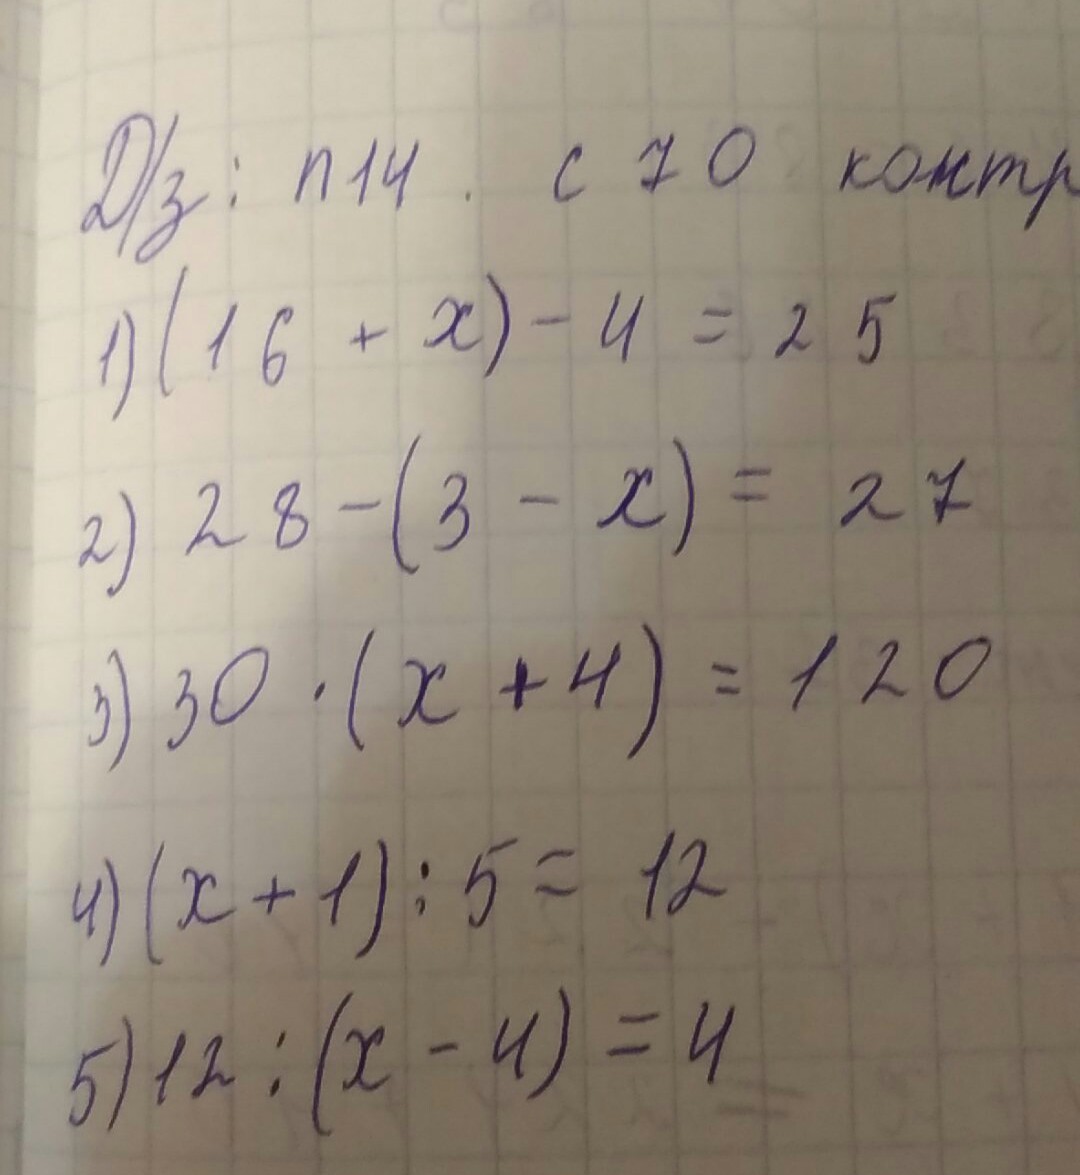 Д/з: п14. с 70 контр
1) (16 + x) - 4 = 25
2) 28 - (3 - x) = 27
3) 30 · (x + 4) = 120
4) (x + 1) : 5 = 12
5) 12 : (x - 4) = 4